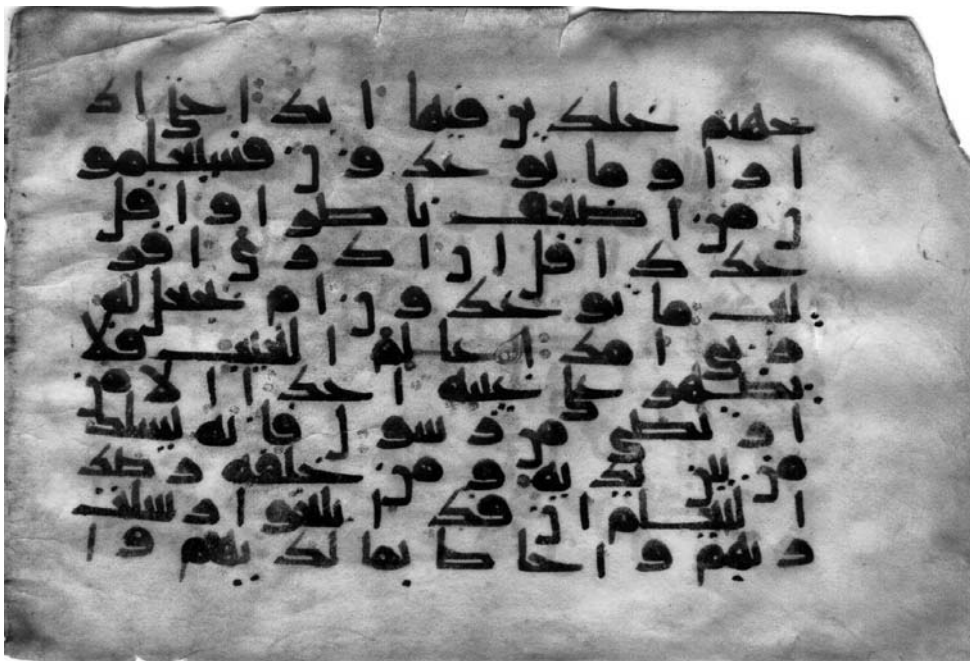 جهنم خلدين فيها ابدا حتى اذ
ا راوا ما يوعدون فسيعلمو
ن من اضعف ناصرا واقل
عددا قل ان ادري اقر
يب ما توعدون ام يجعل له
ربي امدا علم الغيب فلا
يظهر على غيبه احدا الا من
ارتضى من رسول فانه يسلك
من بين يديه ومن خلفه رصد
ا ليعلم ان قد ابلغوا رسلت
ربهم واحاط بما لديهم وا